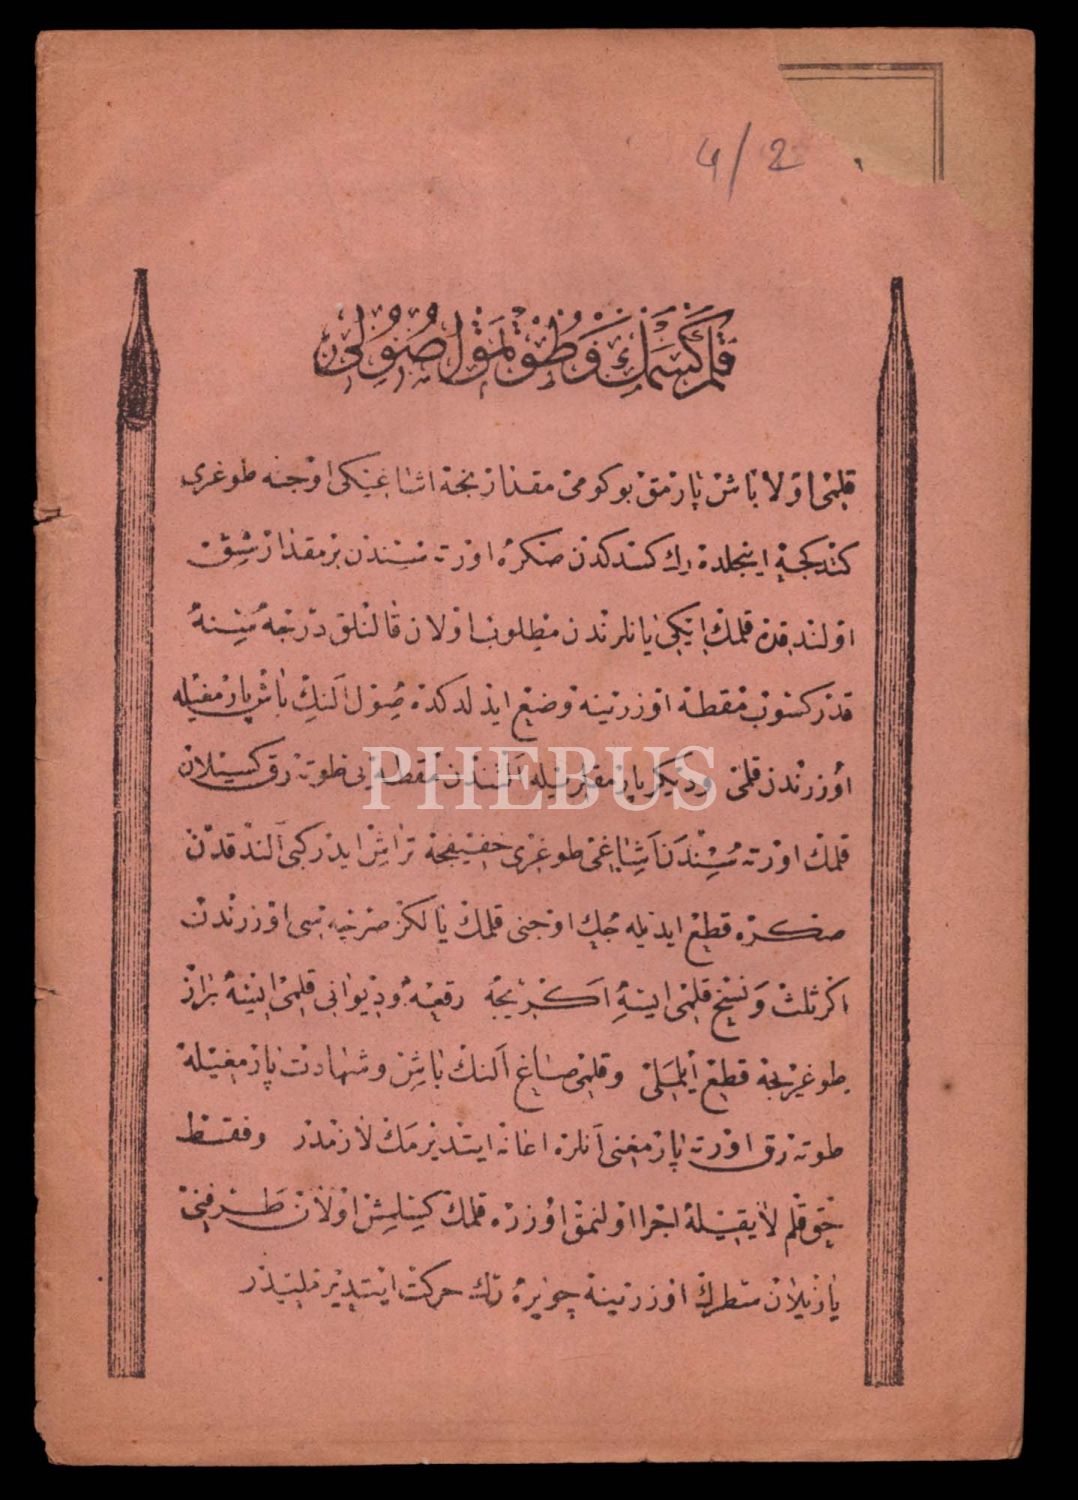 4/2
قلم كسمك وطوتمق اصولى
قلمى اولا باش پارمق بوكومى مقدار نجه اشاغيكى اوجنه طوغرى
كتدكجه اينجلده رك كسدكدن صكره اورته سندن بر مقدار شق
اولندقده قلمك ايكى يانلرندن مطلوب اولان قالنلق درجه سنه
قدر كسوب مقطه اوزرينه وضع ايدلدكده صول الك باش پارمغيله
اوزرندن قلمى وديكر پارمقلريله آلتندن مقطه يى طوته رق كسيلان
قلمك اورته سندن اشاغى طوغرى خفيفجه تراش ايدر كبى آلندقدن
صكره قطع ايديله جك اوجنى قلمك يالكز صرتيه سى اوزرندن
اكر ثلث و نسخ قلمى ايسه اكريجه رقعه وديوانى قلمى ايسه براز
طوغريجه قطع ايلملى وقلمى صاغ الك باش وشهادت پارمغيله
طوته رق اورته پارمغنى آنلره اعانه ايتديرمك لازمدر وفقط
حق قلم لايقيله اجرا اولنمق اوزره قلمك كسيلمش اولان طرفنى
يازيلان سطرك اوزرينه چويره رك حركت ايتديرملیدر
PHEBUS